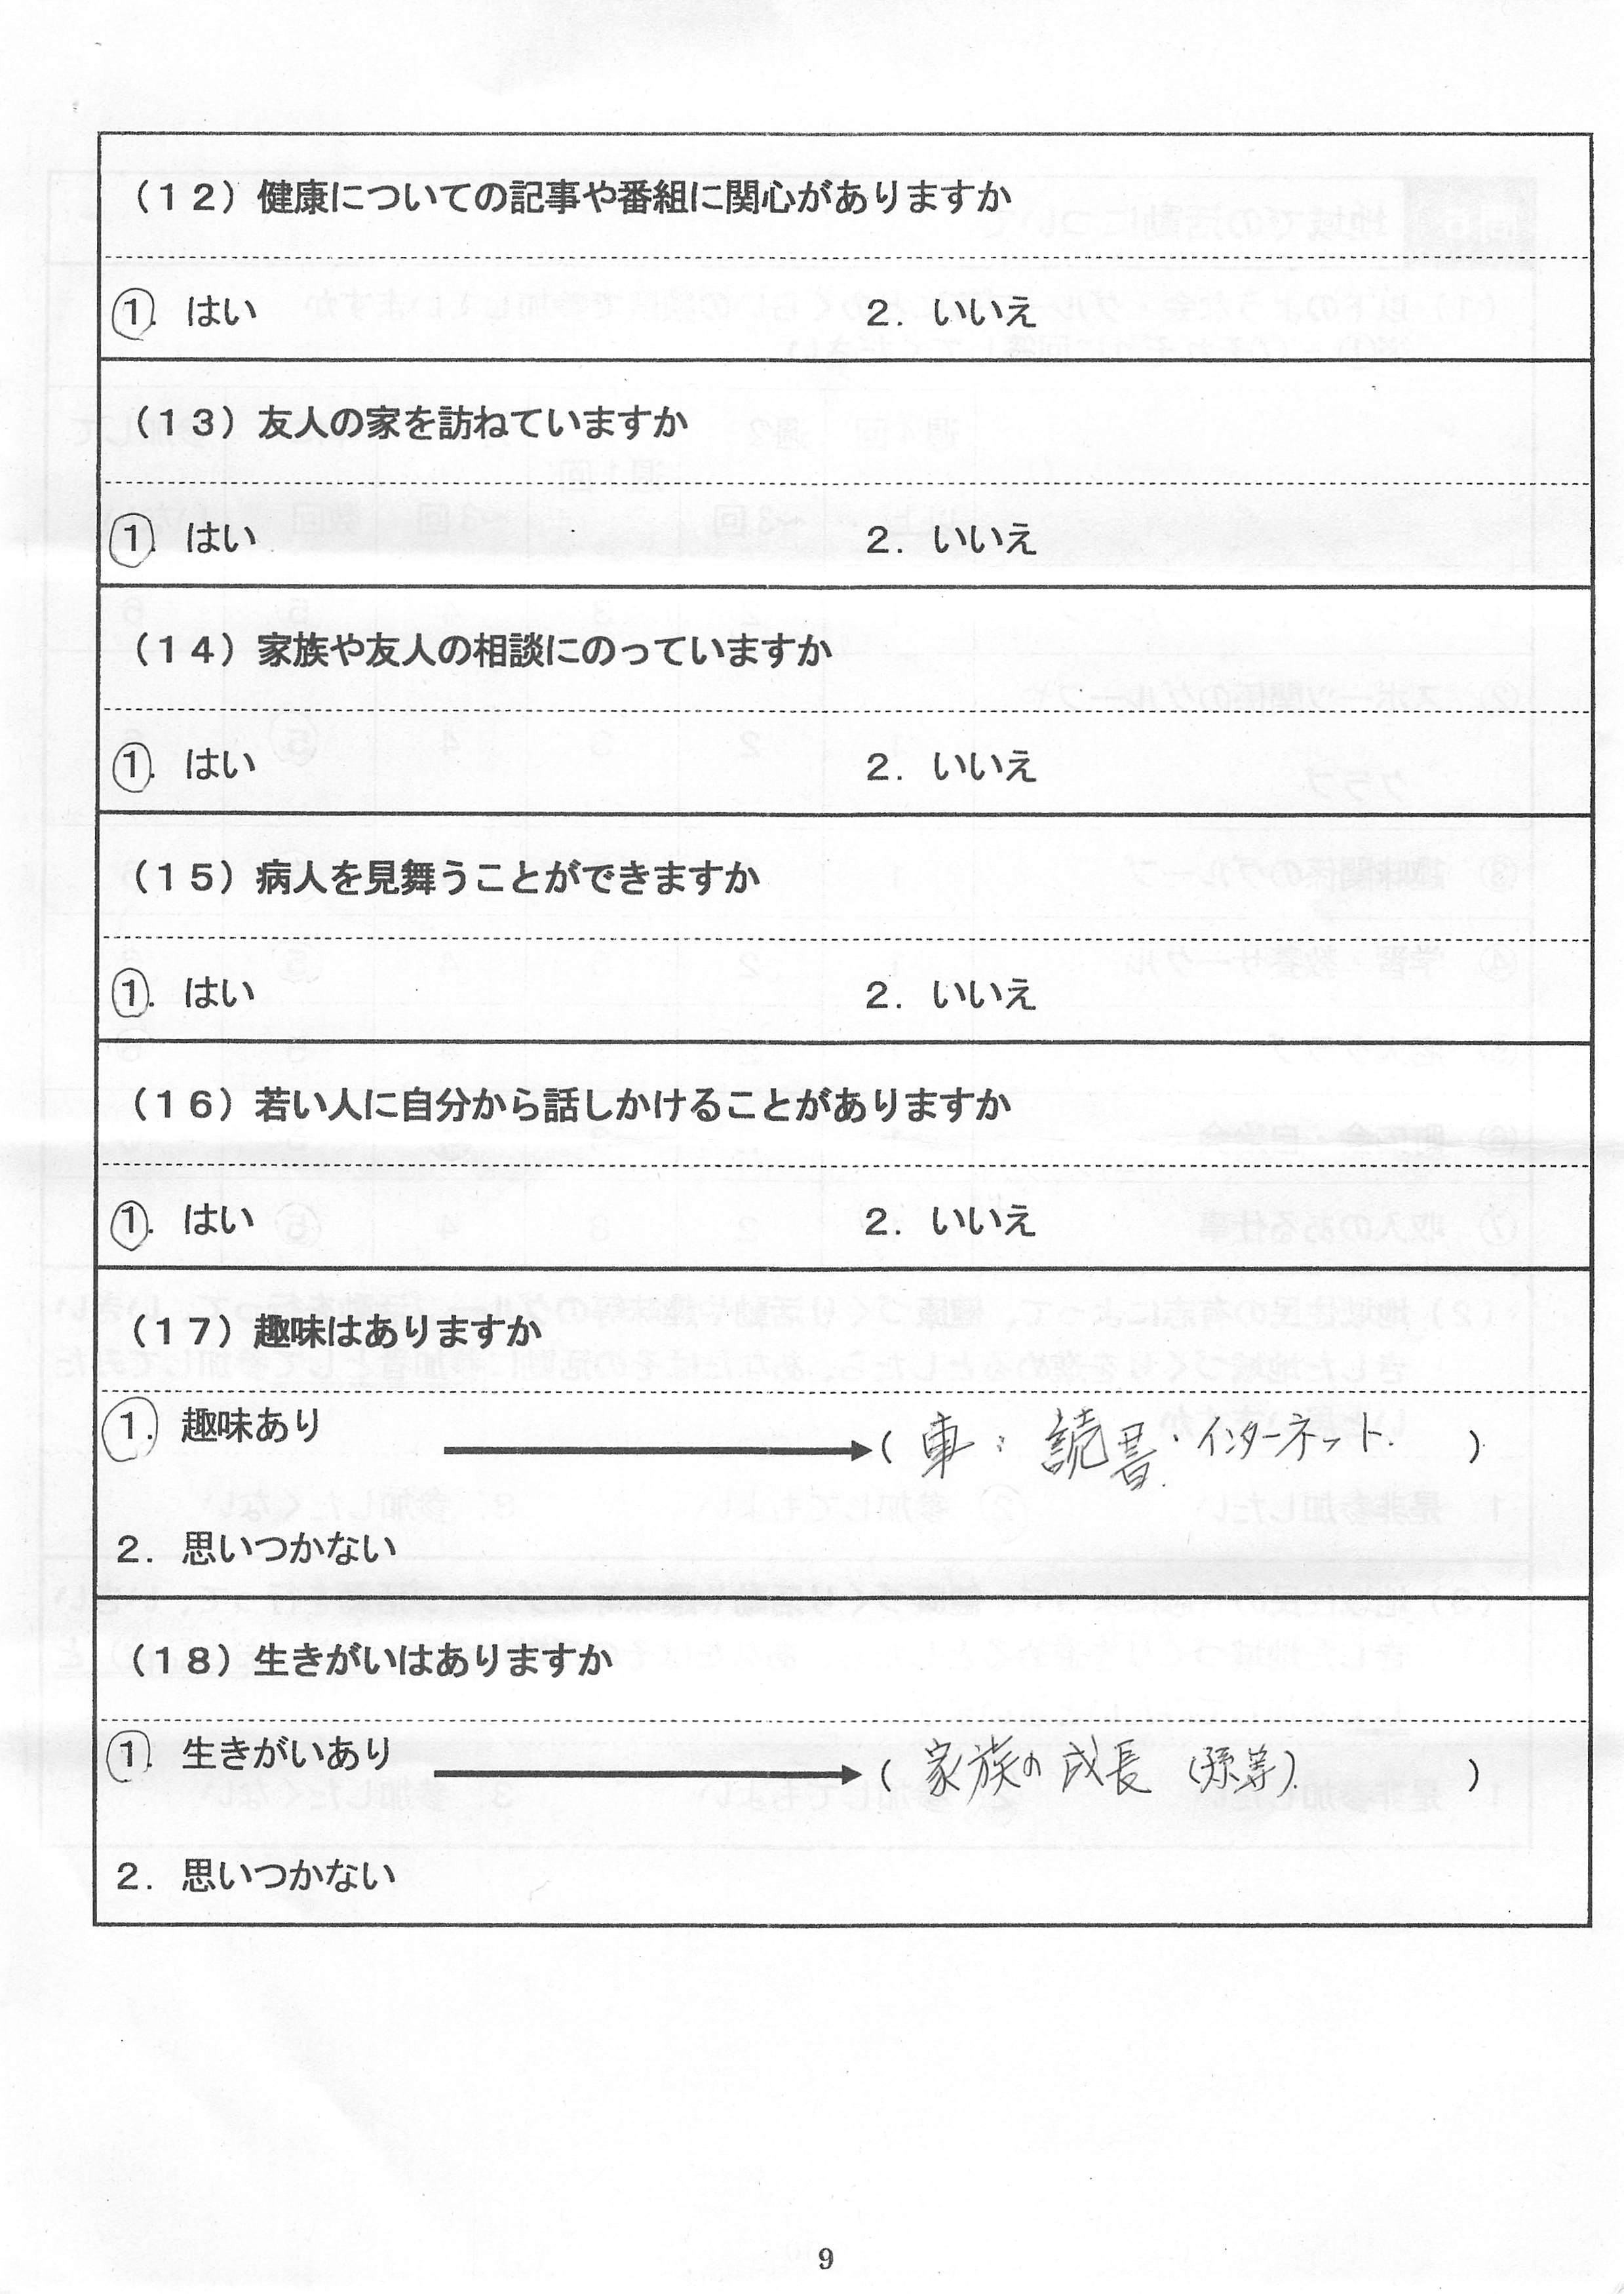 （１２）健康についての記事や番組に関心がありますか
①．はい　２．いいえ
（１３）友人の家を訪ねていますか
①．はい　２．いいえ
（１４）家族や友人の相談にのっていますか
①．はい　２．いいえ
（１５）病人を見舞うことができますか
①．はい　２．いいえ
（１６）若い人に自分から話しかけることがありますか
①．はい　２．いいえ
（１７）趣味はありますか
①．趣味あり → （ 車： 読書・インターネット. ）
２．思いつかない
（１８）生きがいはありますか
①．生きがいあり → （ 家族の成長（孫等）. ）
２．思いつかない
9